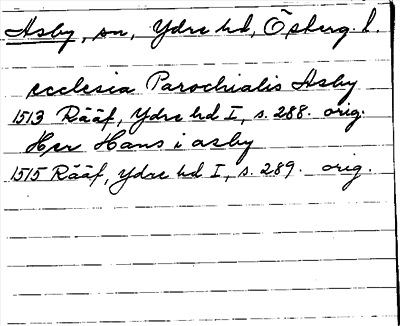 Asby, sn, Ydre hd, Östergötl.
ecclesia Parochialis Asby
1513 Rääf, Ydre hd I, s. 288. orig.
Her Hans i asby
1515 Rääf, Ydre hd I, s. 289. orig.